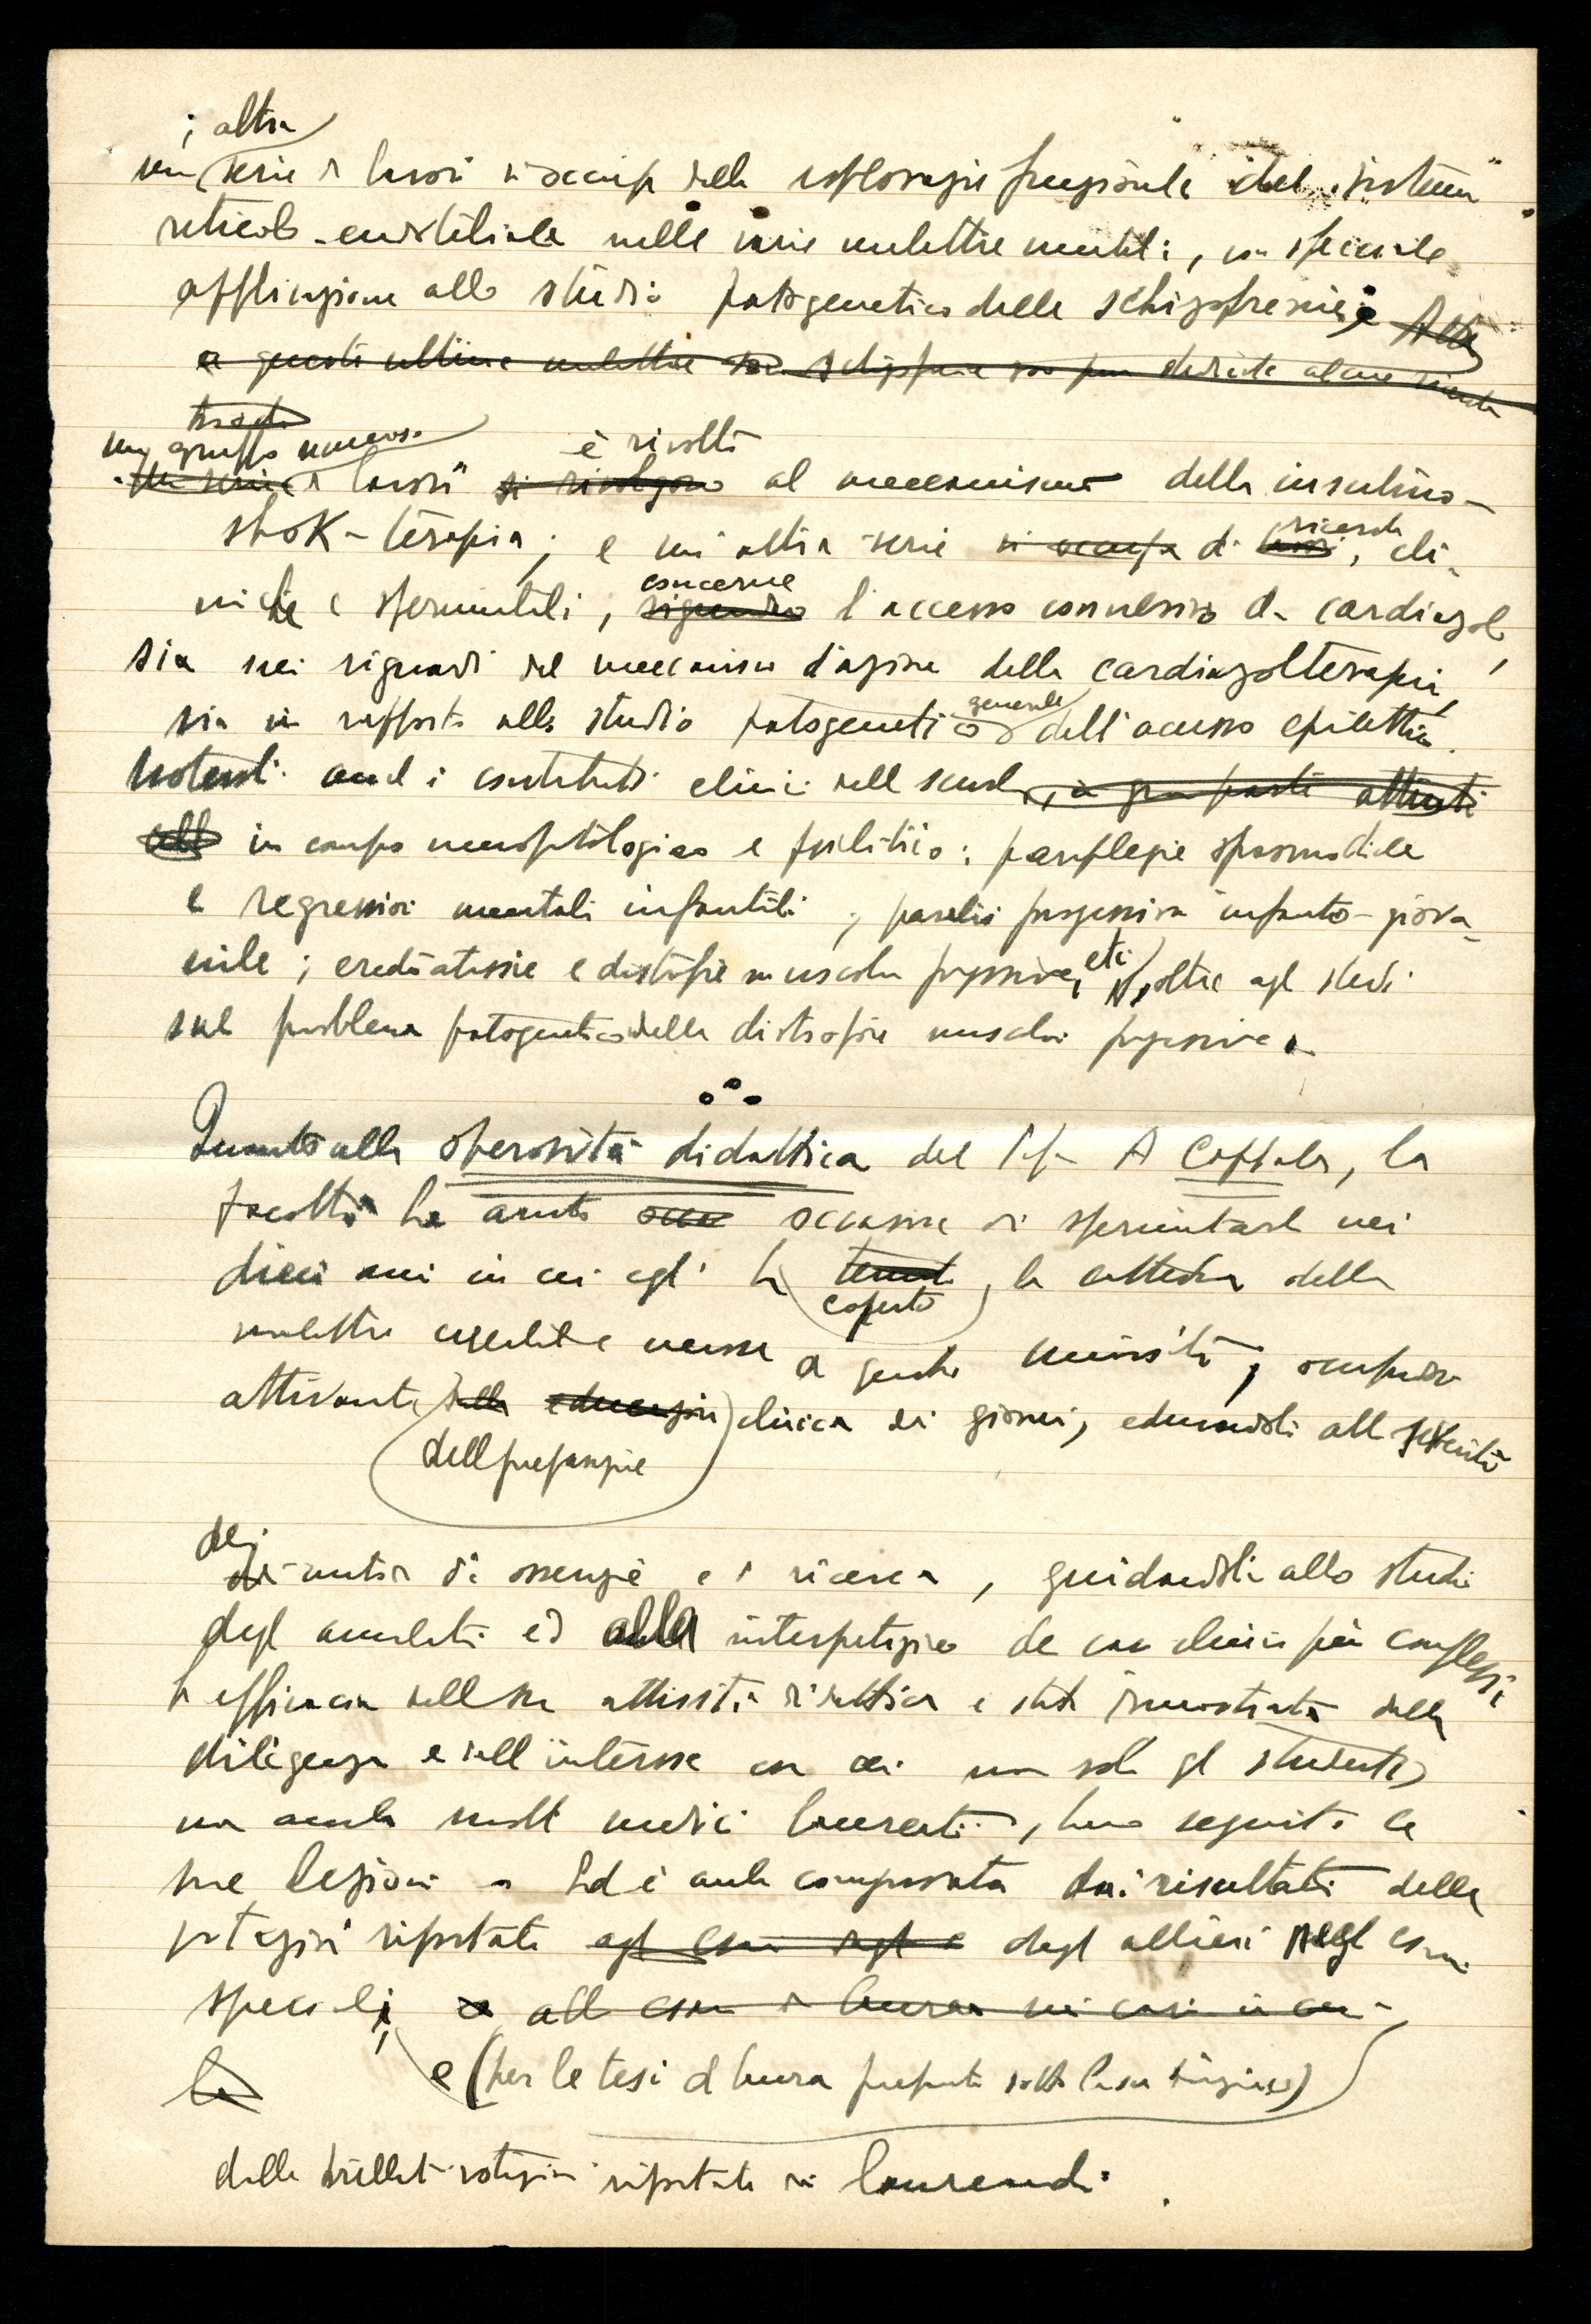 ; altra
una serie di lavori si occupa della esplorazione funzionale del sistema
reticolo-endoteliale nelle varie malattie mentali, con speciale
applicazione allo studio patogenetico della schizofrenia;
a questi ultime malattie schizofrenie son pure dedicate alcune ricerche
un gruppo numeroso
è rivolto
di lavori si rivolgono al meccanismo della insulino-
shok-terapia; e un'altra serie si occupa di lavori, cli-
ricerche
concerne
niche e sperimentali, riguarda l'accesso convulsivo da cardiazol,
sia nei riguardi del meccanismo d'azione della cardiazolterapia,
generale
sia in rapporto allo studio patogenetico dell'accesso epilettico.
Notevoli anche i contributi clinici della scuola, in gran parte attinenti
in campo neuropatologico e psichiatrico: paraplegie spasmodiche
e regressioni mentali infantili, paralisi progressiva infanto-giova-
nile; eredoatassie e distrofie muscolari progressive, etc, oltre agli studi
sul problema patogenetico della distrofia muscolare progressiva.
Quanto alla operosità didattica del Prof. A Coppola, la
facoltà ha avuto occasione di sperimentarla nei
dieci anni in cui egli ha tenuto la cattedra delle
coperto
malattie nervose e mentali a questa università, occupandosi
attivamente della educazione clinica dei giovani, educandoli alla severità
della preparazione
dei
metodi di osservazione e di ricerca, guidandoli allo studio
degli ammalati ed alla interpretazione dei casi clinici più complessi
L'efficacia della sua attività didattica è stata dimostrata dalla
diligenza e dall'interesse con cui non solo gli studenti,
ma anche molti medici laureati, hanno seguito le
sue lezioni. Ed è anche comprovata dai risultati delle
votazioni riportate dagli allievi negli esami
speciali, e all esame di laurea nei casi in cui
la
e (per le tesi di laurea preparate sotto la sua direzione)
dalle brillanti votazioni riportate dai laureandi.